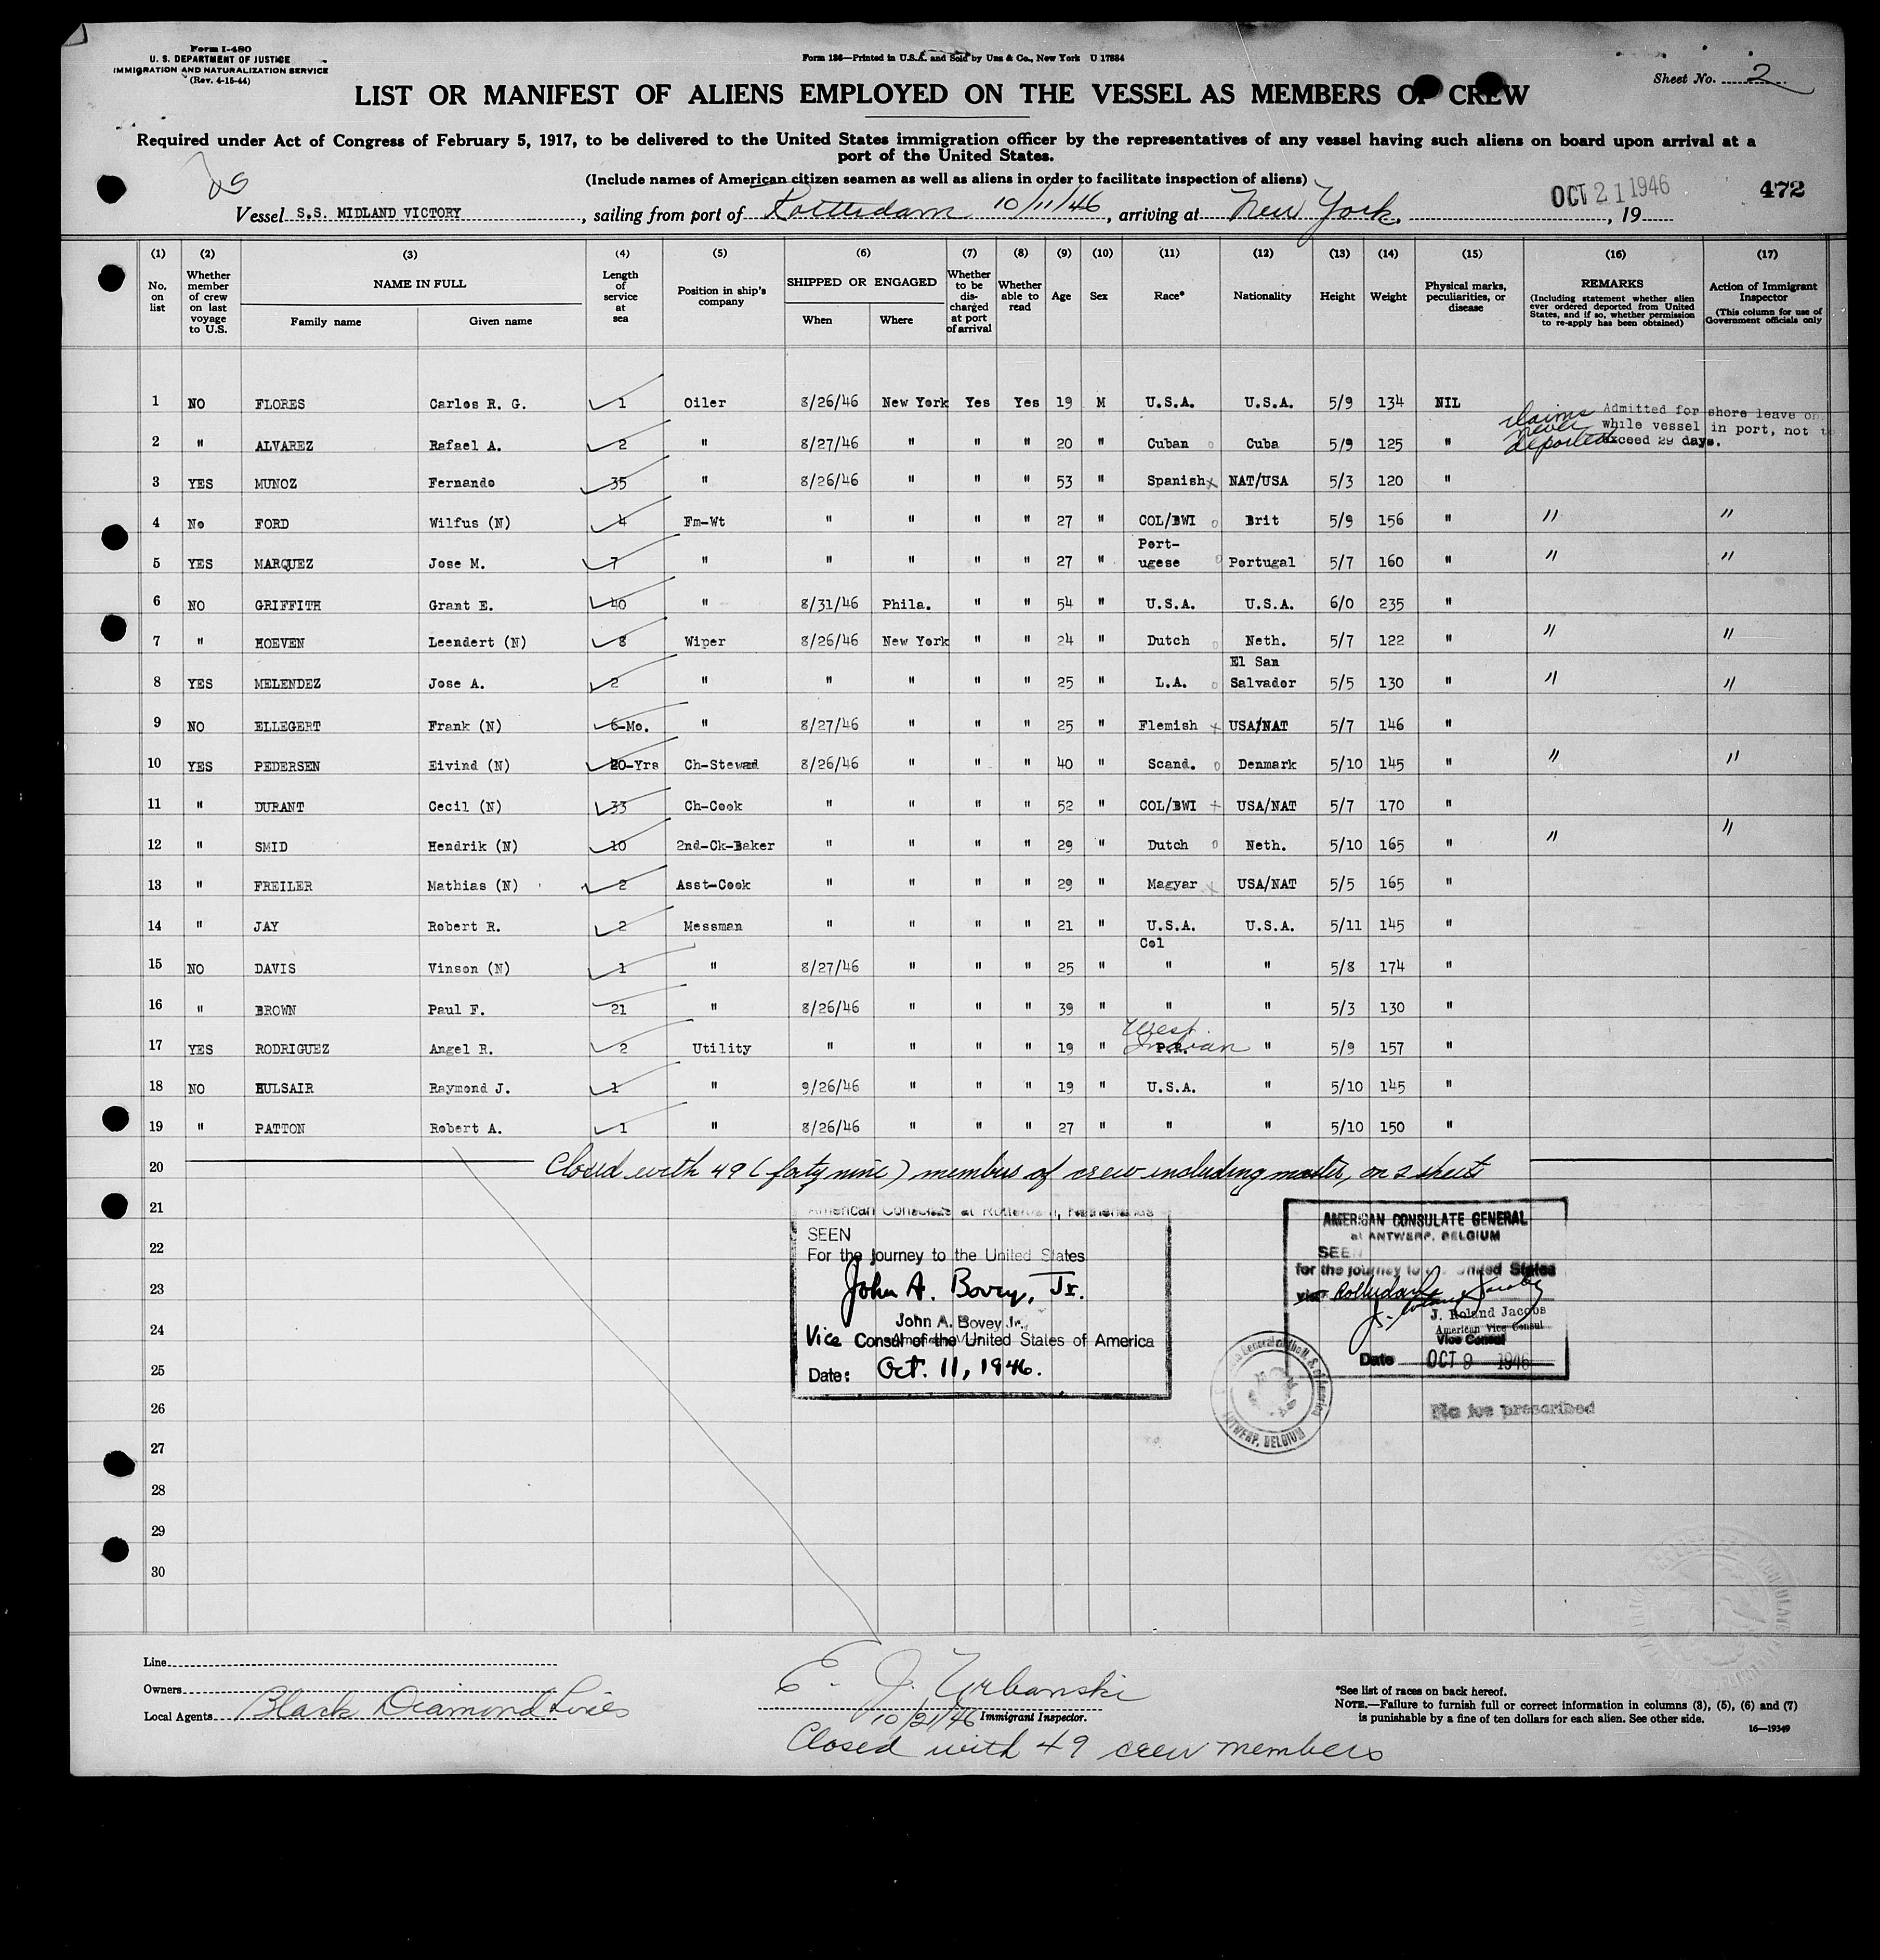 Form I-480
U. S. DEPARTMENT OF JUSTICE
IMMIGRATION AND NATURALIZATION SERVICE
(Rev. 4-15-44)
Form 136—Printed in U.S.A. and Sold by Unz & Co., New York U 17884
Sheet No. 2
LIST OR MANIFEST OF ALIENS EMPLOYED ON THE VESSEL AS MEMBERS OF CREW
Required under Act of Congress of February 5, 1917, to be delivered to the United States immigration officer by the representatives of any vessel having such aliens on board upon arrival at a
port of the United States.
(Include names of American citizen seamen as well as aliens in order to facilitate inspection of aliens)
Vessel S.S. MIDLAND VICTORY, sailing from port of Rotterdam 10/11/46, arriving at New York, OCT 21 1946, 19
472
(1) No. on list
(2) Whether member of crew on last voyage to U.S.
(3) NAME IN FULL Family name Given name
(4) Length of service at sea
(5) Position in ship's company
(6) SHIPPED OR ENGAGED When Where
(7) Whether to be discharged at port of arrival
(8) Whether able to read
(9) Age
(10) Sex
(11) Race*
(12) Nationality
(13) Height
(14) Weight
(15) Physical marks, peculiarities, or disease
(16) REMARKS (Including statement whether alien ever ordered deported from United States, and if so, whether permission to re-apply has been obtained)
(17) Action of Immigrant Inspector (This column for use of Government officials only
1 NO FLORES Carlos R. G. 1 Oiler 8/26/46 New York Yes Yes 19 M U.S.A. U.S.A. 5/9 134 NIL
claims never deported
Admitted for shore leave on
while vessel in port, not to
exceed 29 days.
2 " ALVAREZ Rafael A. 2 " 8/27/46 " " " 20 " Cuban Cuba 5/9 125 "
3 YES MUNOZ Fernando 35 " 8/26/46 " " " 53 " Spanish x NAT/USA 5/3 120 "
4 No FORD Wilfus (N) 4 Fm-Wt " " " " 27 " COL/BWI Brit 5/9 156 " " "
5 YES MARQUEZ Jose M. 7 " " " " " 27 " Port-ugese Portugal 5/7 160 " " "
6 NO GRIFFITH Grant E. 40 " 8/31/46 Phila. " " 54 " U.S.A. U.S.A. 6/0 235 "
7 " HOEVEN Leendert (N) 8 Wiper 8/26/46 New York " " 24 " Dutch Neth. 5/7 122 " " "
8 YES MELENDEZ Jose A. 2 " " " " " 25 " L.A. El San Salvador 5/5 130 " " "
9 NO ELLEGERT Frank (N) 6-Mo. " 8/27/46 " " " 25 " Flemish x USA/NAT 5/7 146 "
10 YES PEDERSEN Eivind (N) 20-Yrs Ch-Stewad 8/26/46 " " " 40 " Scand. Denmark 5/10 145 " " "
11 " DURANT Cecil (N) 33 Ch-Cook " " " " 52 " COL/BWI x USA/NAT 5/7 170 "
12 " SMID Hendrik (N) 10 2nd-Ck-Baker " " " " 29 " Dutch Neth. 5/10 165 " " "
13 " FREILER Mathias (N) 2 Asst-Cook " " " " 29 " Magyar x USA/NAT 5/5 165 "
14 " JAY Robert R. 2 Messman " " " " 21 " U.S.A. U.S.A. 5/11 145 "
15 NO DAVIS Vinson (N) 1 " 8/27/46 " " " 25 " Col " " 5/8 174 "
16 " BROWN Paul F. 21 " 8/26/46 " " " 39 " " " 5/3 130 "
17 YES RODRIGUEZ Angel R. 2 Utility " " " " 19 " P.R. West Indian " 5/9 157 "
18 NO HULSAIR Raymond J. 1 " 9/26/46 " " " 19 " U.S.A. " 5/10 145 "
19 " PATTON Robert A. 1 " 8/26/46 " " " 27 " " " 5/10 150 "
20 Closed with 49 (forty nine) members of crew including master, on 2 sheets
21
22
23
24
25
26
27
28
29
30
American Consulate at Rotterdam, Netherlands
SEEN
For the journey to the United States
John A. Bovey, Jr.
John A. Bovey Jr.
Vice Consul of the United States of America
Date: Oct. 11, 1946.
AMERICAN CONSULATE GENERAL
at ANTWERP, BELGIUM
SEEN
for the journey to the United States
via Rotterdam
J. Roland Jacobs
J. Roland Jacobs
American Vice Consul
Vice Consul
Date OCT 9 1946
ANTWERP, BELGIUM
No fee prescribed
Line
Owners
Local Agents Black Diamond Lines
E. J. Urbanski
10/21/46 Immigrant Inspector.
Closed with 49 crew members
*See list of races on back hereof.
NOTE.—Failure to furnish full or correct information in columns (3), (5), (6) and (7)
is punishable by a fine of ten dollars for each alien. See other side.
16—19349